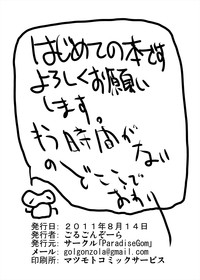 はじめての本です
よろしくお願い
します。
もう時間がない
のでここで
おわり
発行日：２０１１年８月１４日
発行者：ごるごんぞーら
発行元：サークル「ParadiseGom」
メール：golgonzola@gmail.com
印刷所：マツモトコミックサービス